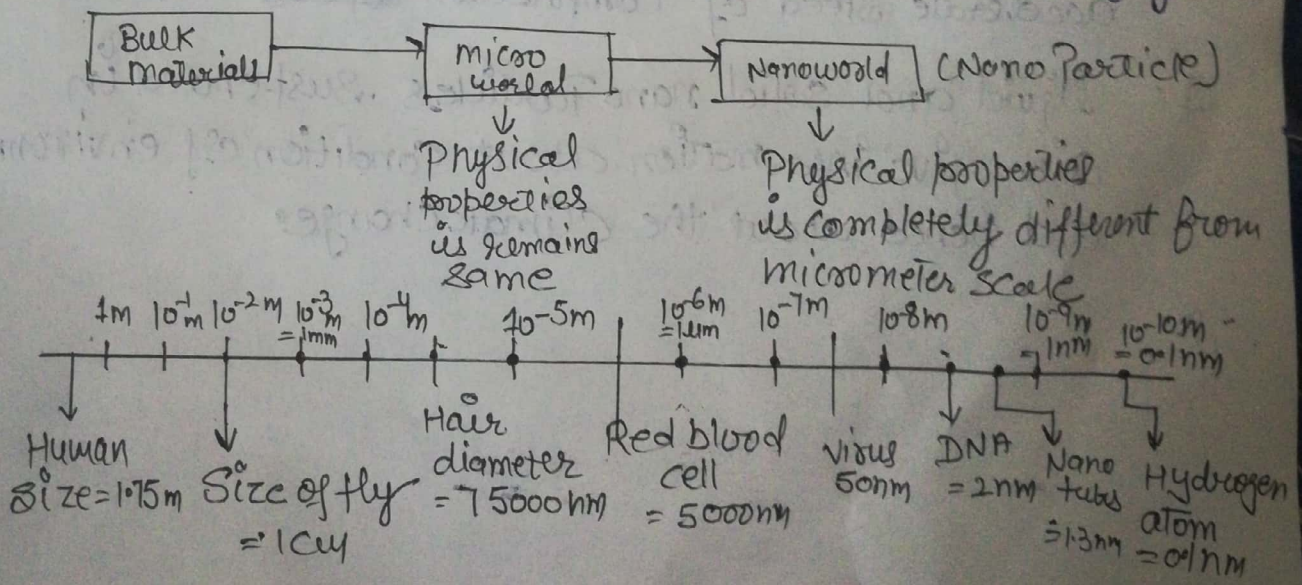 Bulk
Materials
micro
world
Nanoworld
(Nano Particle)
Physical
properties
is remains
same
Physical properties
is completely different from
micrometer scale
1m
10⁻¹m
10⁻²m
10⁻³m
=1mm
10⁻⁴m
10⁻⁵m
10⁻⁶m
=1μm
10⁻⁷m
10⁻⁸m
10⁻⁹m
=1nm
10⁻¹⁰m
=0.1nm
Human
Size=1.75m
Size of fly
=1cm
Hair
diameter
=75000nm
Red blood
cell
=5000nm
virus
50nm
DNA
=2nm
Nano
tubs
=1.3nm
Hydrogen
atom
=0.1nm